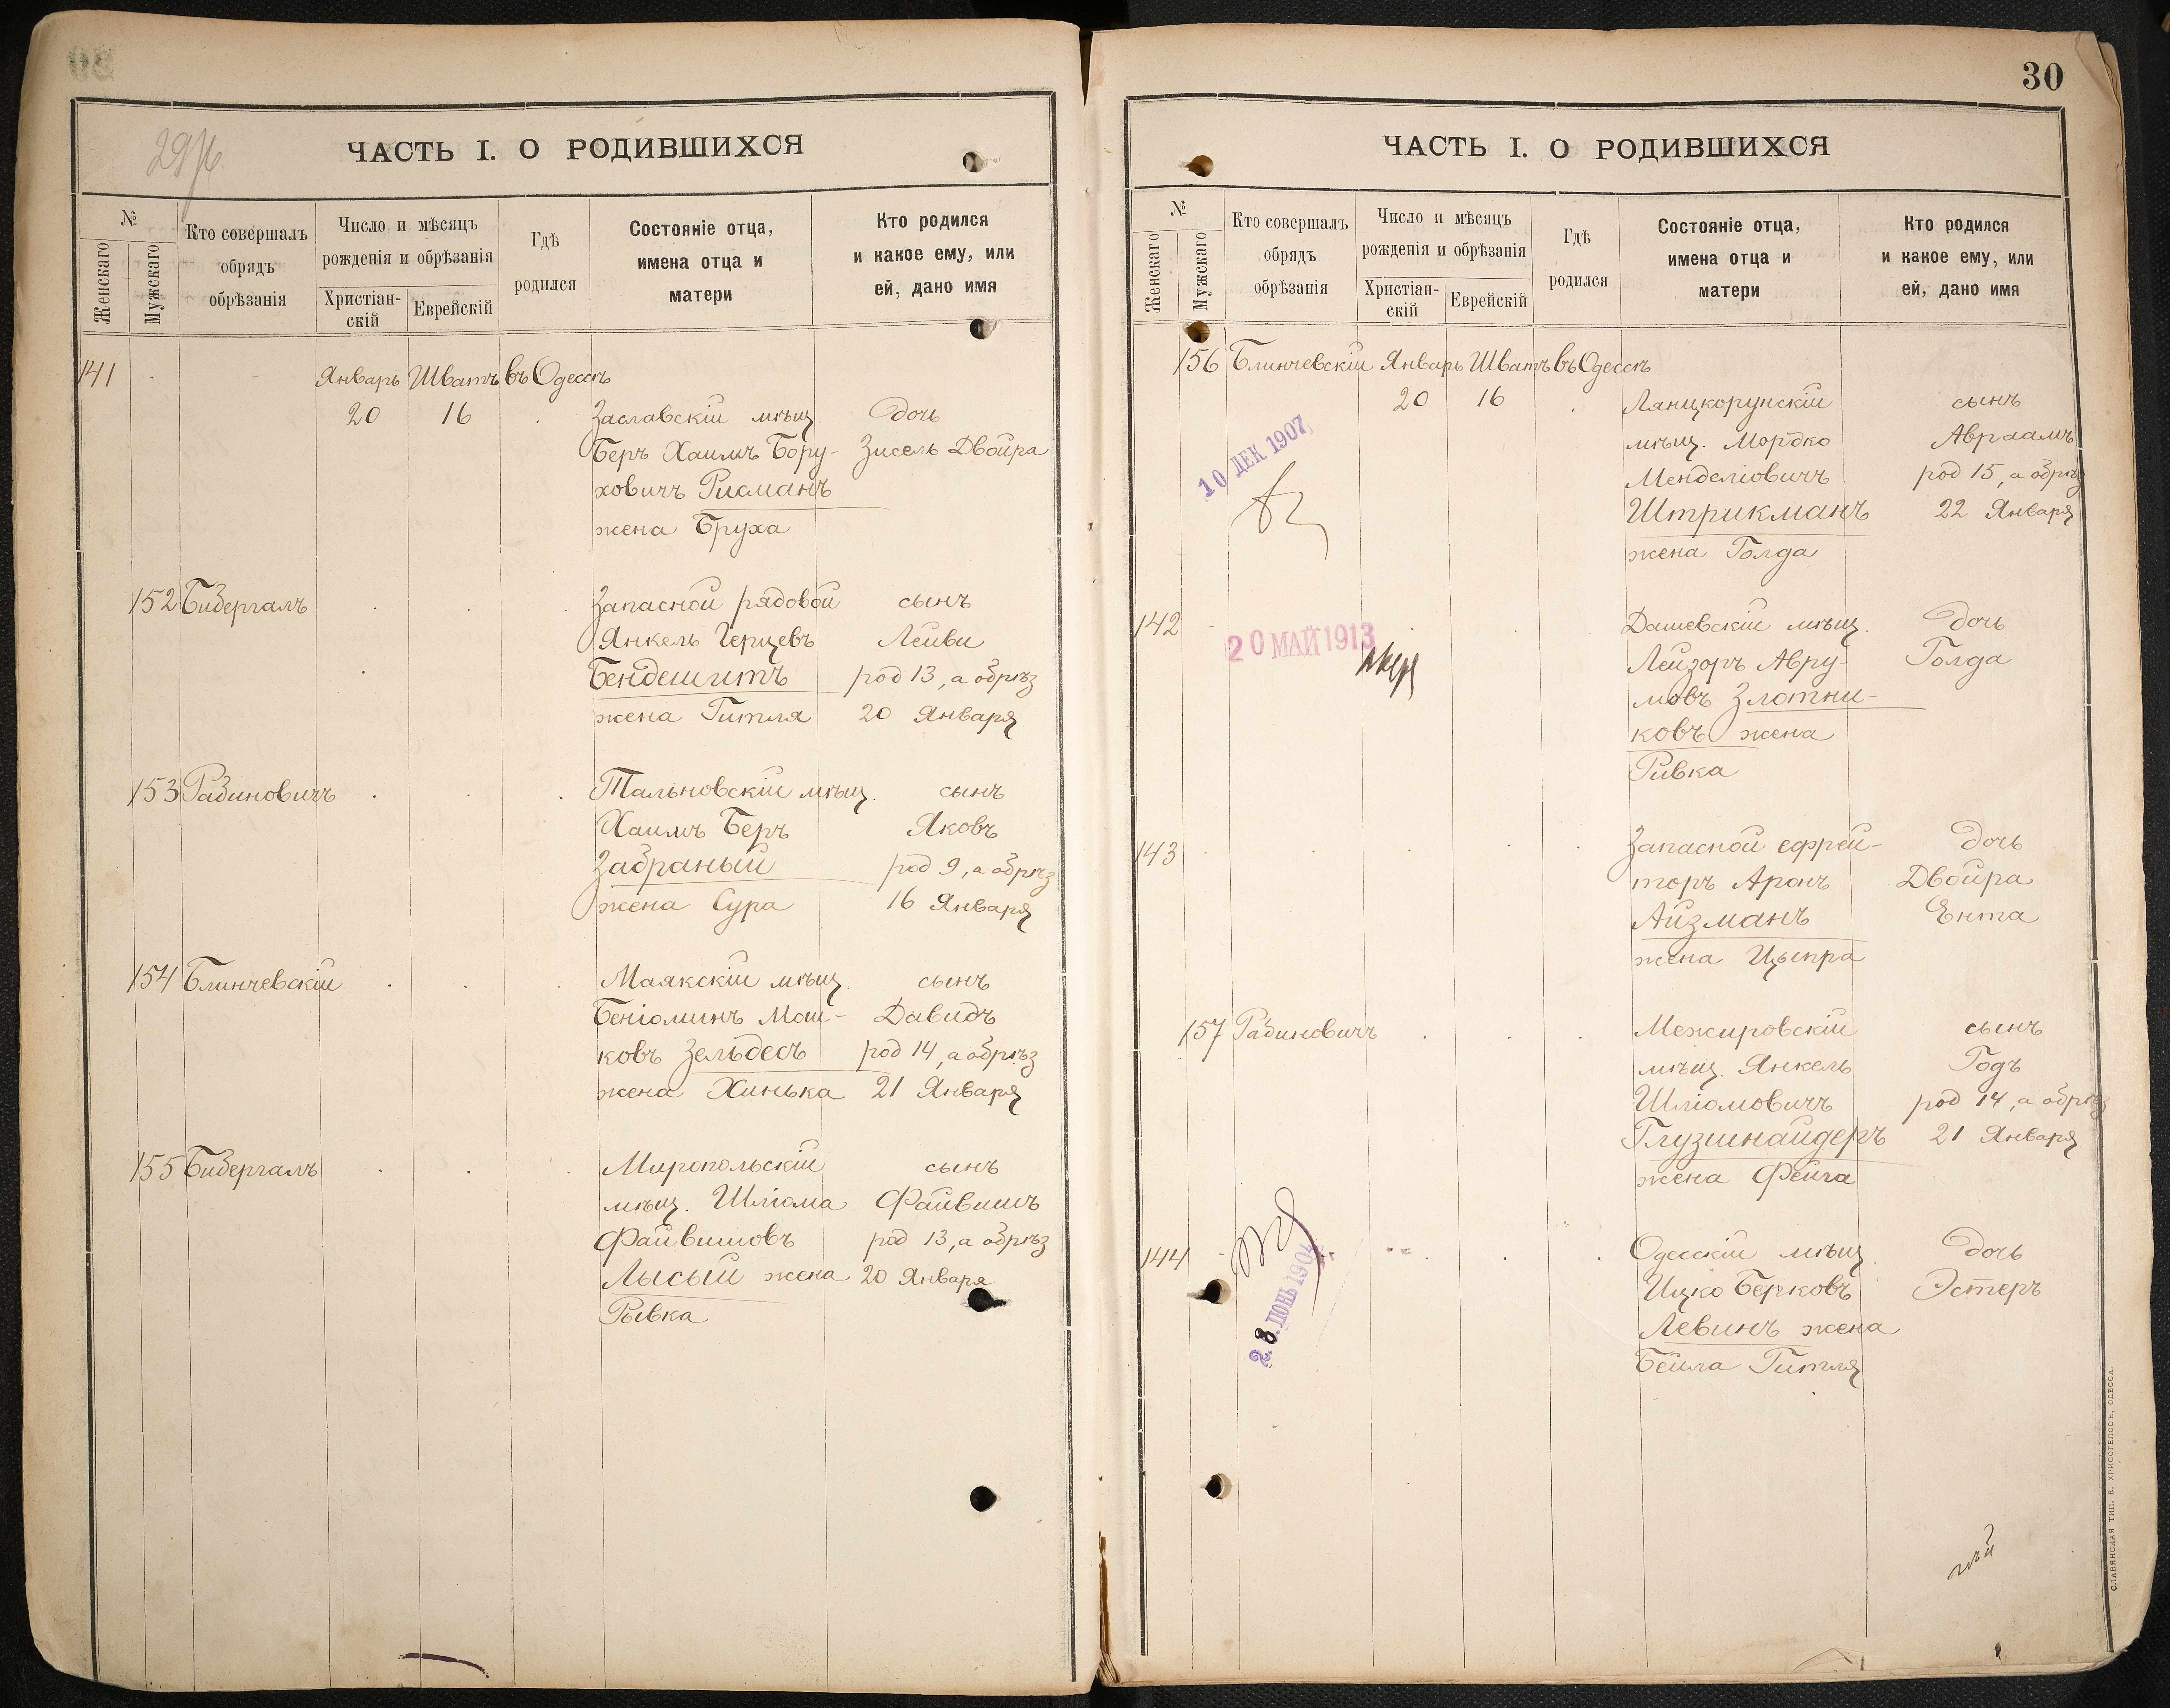 ЧАСТЬ I. О РОДИВШИХСЯ
№
Женскаго
Мужскаго
Кто совершалъ
обрядъ
обрѣзанія
Число и мѣсяцъ
рожденія и обрѣзанія
Христіан-
скій
Еврейскій
Гдѣ
родился
Состояніе отца,
имена отца и
матери
Кто родился
и какое ему, или
ей, дано имя
141 Январь Шватъ въ Одессѣ
20 16 Заславскій мѣщ. дочь
Беръ Хаимъ Бору- Зисель Двойра
ховичъ Рисманъ
жена Бруха
152 Бибергалъ Запасной рядовой сынъ
Янкель Герцевъ Лейви
Бендешитъ род 13, а обрѣз
жена Гитля 20 Января
153 Рабиновичъ Тальновскій мѣщ. сынъ
Хаимъ Беръ Яковъ
Забраный род 9, а обрѣз
жена Сура 16 Января
154 Блинчевскій Маякскій мѣщ. сынъ
Беніоминъ Мош- Давидъ
ковъ Зельдесъ род 14, а обрѣз
жена Хинька 21 Января
155 Бибергалъ Миропольскій сынъ
мѣщ. Шліома Файвишъ
Файвишовъ род 13, а обрѣз
Лысый жена 20 Января
Рывка
30
ЧАСТЬ I. О РОДИВШИХСЯ
№
Женскаго
Мужскаго
Кто совершалъ
обрядъ
обрѣзанія
Число и мѣсяцъ
рожденія и обрѣзанія
Христіан-
скій
Еврейскій
Гдѣ
родился
Состояніе отца,
имена отца и
матери
Кто родился
и какое ему, или
ей, дано имя
156 Блинчевскій Январь Шватъ въ Одессѣ
20 16 Лянцкорунскій сынъ
мѣщ. Мордко Авраамъ
Менделіовичъ род 15, а обрѣз
Штрикманъ 22 Января
жена Голда
10 ДЕК 1907
142 Дашевскій мѣщ. дочь
20 МАЙ 1913
Лейзоръ Авру- Голда
мовъ Злотни-
ковъ жена
Ривка
143 Запасной ефрей- дочь
торъ Аронъ Двойра
Айзманъ Ента
жена Цыпра
157 Рабиновичъ Межировскій сынъ
мѣщ. Янкель Годъ
Шліомовичъ род 14, а обрѣз
Глузшнайдеръ 21 Января
жена Фейга
144 Одесскій мѣщ. дочь
Ицко Берковъ Эстеръ
Левинъ жена
Бейла Гитля
28 ІЮНЬ 1904
СЛАВЯНСКАЯ ТИП. Е. ХРИСОГЕЛОСЪ, ОДЕССА.